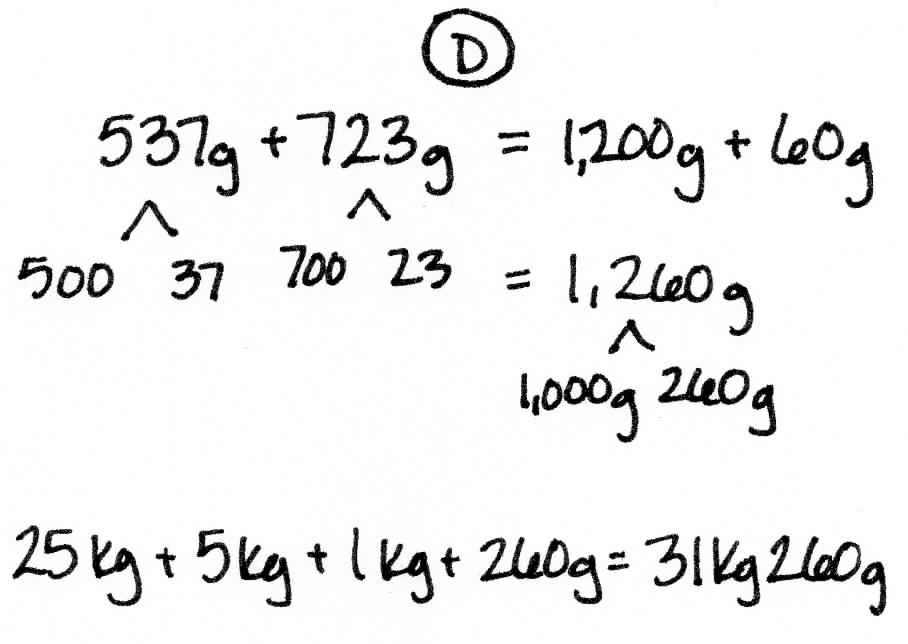 D
537g + 723g = 1,200g + 60g
500 37 700 23 = 1,260g
1,000g 260g
25kg + 5kg + 1kg + 260g = 31kg 260g